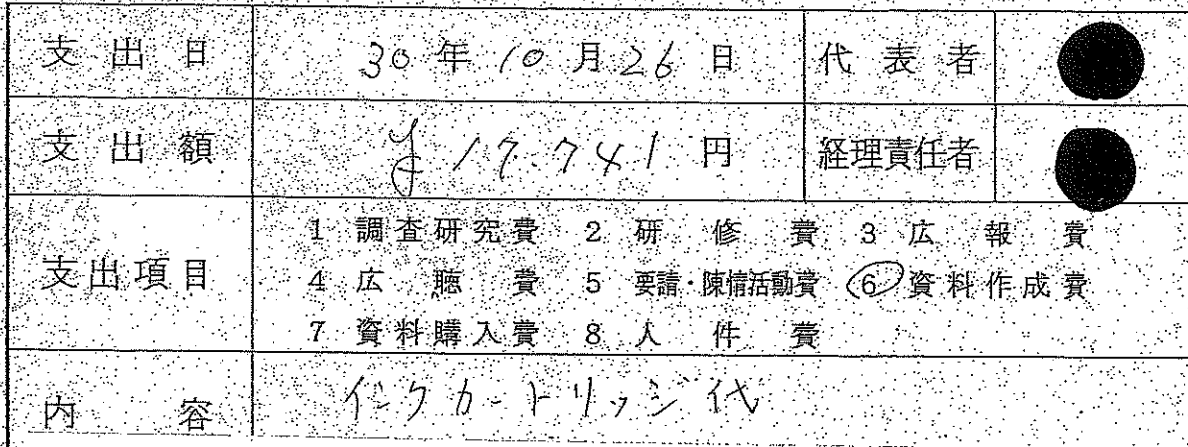 支出日 30年10月26日 代表者
支出額 ¥17.741円 経理責任者
支出項目
1 調査研究費 2 研修費 3 広報費
4 広聴費 5 要請・陳情活動費 ⑥ 資料作成費
7 資料購入費 8 人件費
内容 インクカートリッジ代